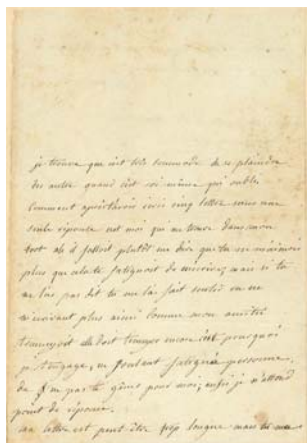 je trouve que c'est très commode de se plaindre
des autres quand c'est soi même qui oublie
Comment après avoir écrit cinq lettres sans une
seule réponse c'est moi que me trouve dans mon
tort ah il falloit plutôt me dire que tu ne m'aimois
plus que cela te fatiguoit de m'écrire, mais si tu
ne l'as pas dit tu me l'as fait sentir en ne
m'écrivant plus ainsi comme mon amitié
t'ennuyoit et doit t'ennuyer encore c'est pourquoi
je t'engage, ne voulant fatiguer personne,
de ne pas te gêner pour moi, enfin je n'attend
point de réponse.
ma lettre est peut être trop longue mais